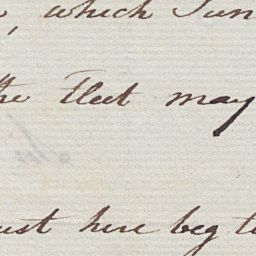 , which I un
the Fleet may
ust here beg t